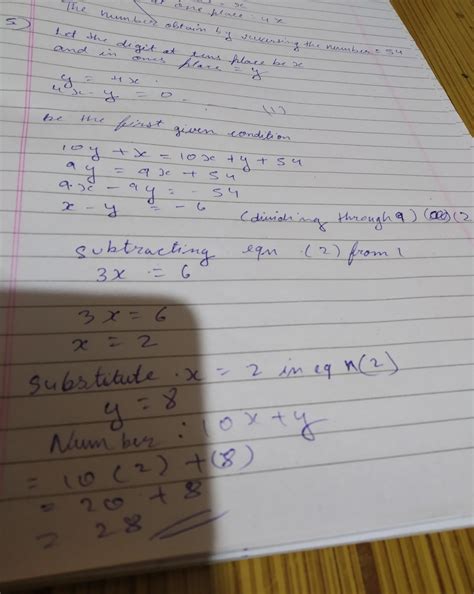 at one place: 4x
The number obtain by reversing the number = 54
5)
Let the digit at tens place be x
and in ones place = y
y = 4x
4x - y = 0. (1)
be the first given condition
10y + x = 10x + y + 54
9y = 9x + 54
9x - 9y = -54
x - y = -6 (dividing through 9) (2
Subtracting eqn (2) from 1
3x = 6
3x = 6
x = 2
Substitute x = 2 in eqn (2)
y = 8
Number: 10x + y
= 10(2) + (8)
= 20 + 8
= 28